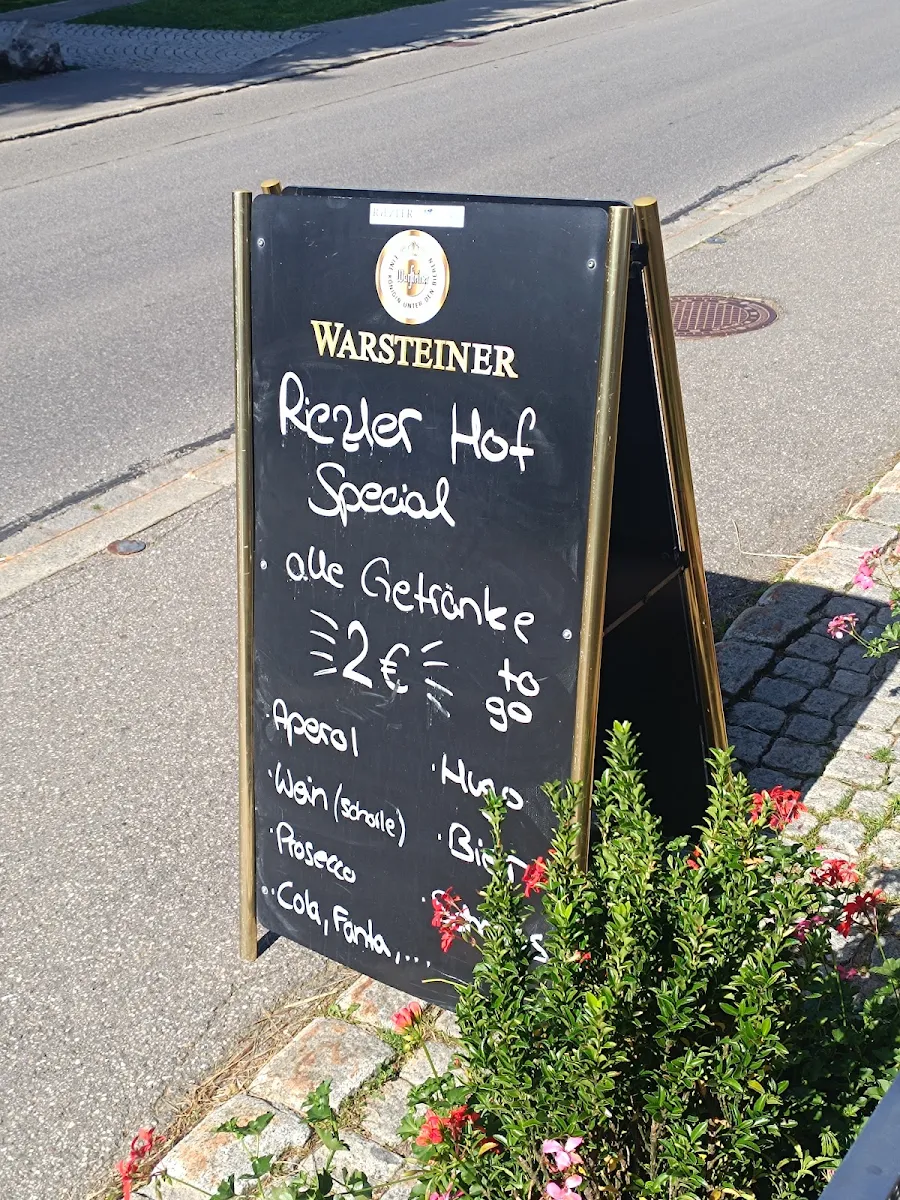 RIEZLER
Warsteiner
EINE KÖNIGIN UNTER DEN BIEREN
WARSTEINER
Riezler Hof
Special
alle Getränke
2€
to
go
Aperol
· Hugo
· Wein (schorle)
· Bier
· Prosecco
· Cola, Fanta,...